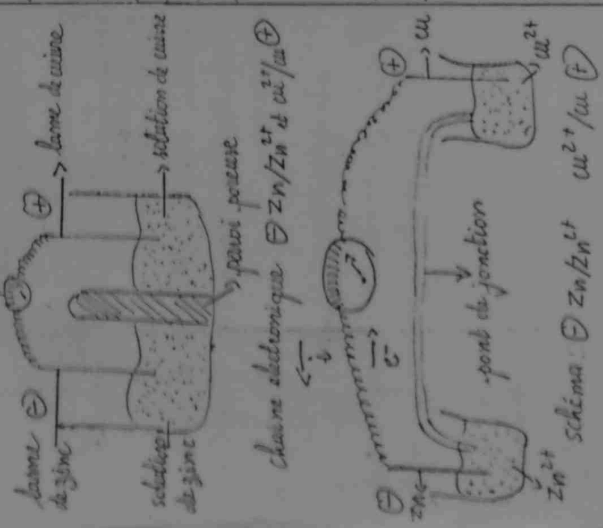 lame ⊖
de zinc
⊕
lame de cuivre
solution
de zinc
solution de cuivre
paroi poreuse
chaine électronique ⊖ Zn/Zn²⁺ et cu²⁺/cu ⊕
i
e⁻
⊖
Zn
⊕
cu
pont de jonction
Zn²⁺
cu²⁺
schéma : ⊖ Zn/Zn²⁺ cu²⁺/cu ⊕